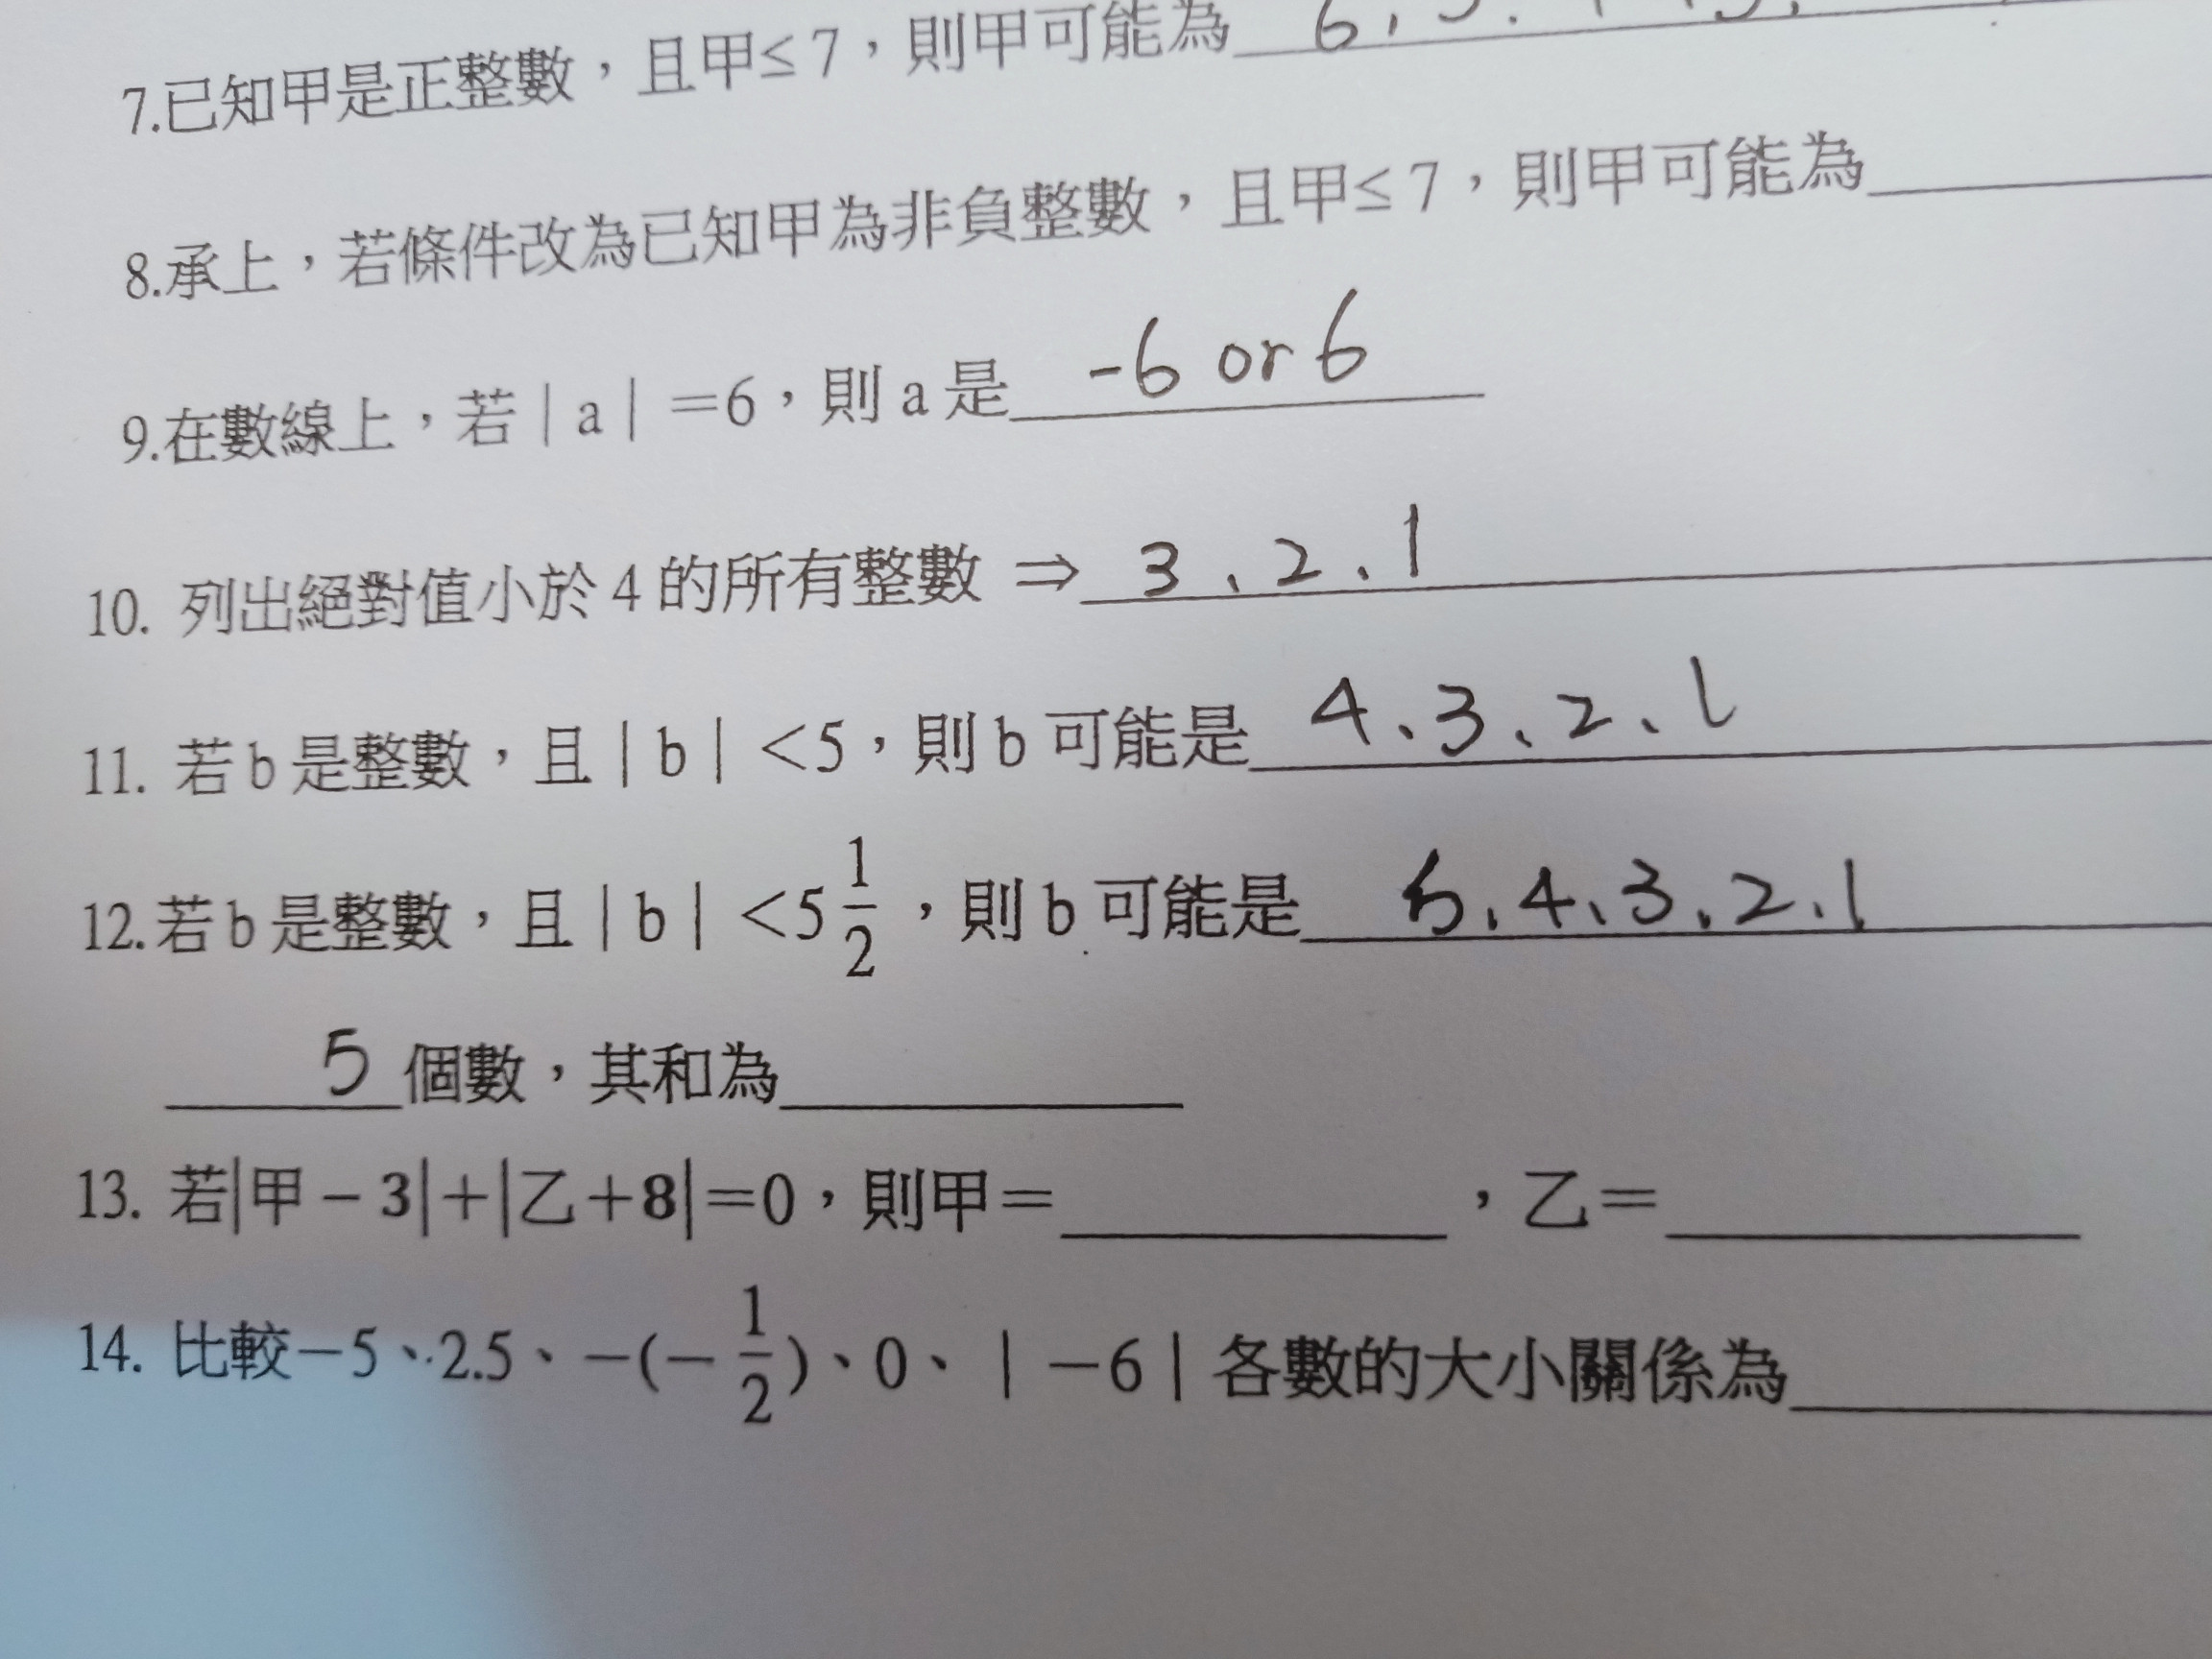 7.已知甲是正整數，且甲≤7，則甲可能為 6、5、
8.承上，若條件改為已知甲為非負整數，且甲≤7，則甲可能為
9.在數線上，若|a|=6，則a是 -6 or 6
10. 列出絕對值小於4的所有整數 ⇒ 3、2、1
11. 若b是整數，且|b|<5，則b可能是 4、3、2、1
12.若b是整數，且|b|<5 1/2，則b可能是 5、4、3、2、1
5 個數，其和為
13. 若|甲-3|+|乙+8|=0，則甲= ，乙=
14. 比較-5、2.5、-(-1/2)、0、|-6|各數的大小關係為